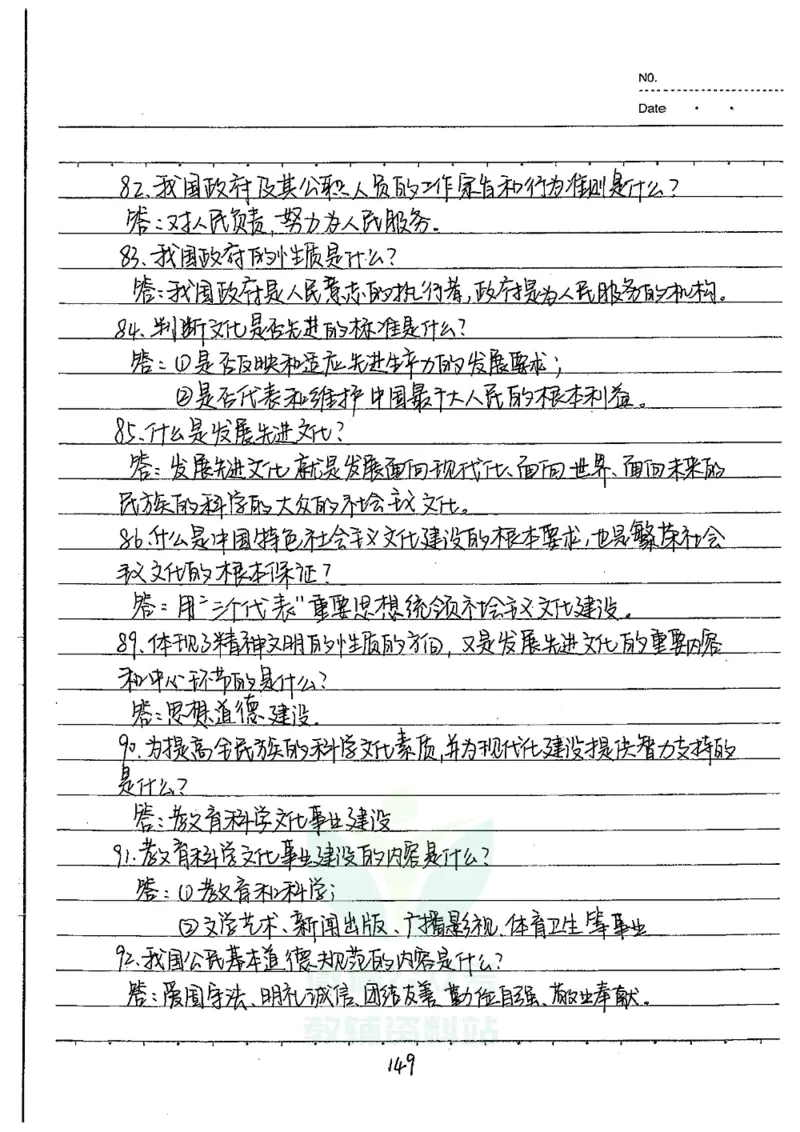 NO.
Date
82、我国政府及其公职人员的工作宗旨和行为准则是什么?
答:对人民负责,努力为人民服务。
83、我国政府的性质是什么?
答:我国政府是人民意志的执行者,政府是为人民服务的机构。
84、判断文化是否先进的标准是什么?
答:①是否反映和适应先进生产力的发展要求;
②是否代表和维护中国最广大人民的根本利益。
85、什么是发展先进文化?
答:发展先进文化就是发展面向现代化、面向世界、面向未来的
民族的科学的大众的社会主义文化。
86、什么是中国特色社会主义文化建设的根本要求,也是繁荣社会
主义文化的根本保证?
答:用“三个代表”重要思想统领社会主义文化建设。
89、体现了精神文明的性质的方向,又是发展先进文化的重要内容
和中心环节的是什么?
答:思想道德建设.
90、为提高全民族的科学文化素质,并为现代化建设提供智力支持的
是什么?
答:教育科学文化事业建设
91、教育科学文化事业建设的内容是什么?
答:①教育和科学;
②文学艺术、新闻出版、广播影视、体育卫生等事业
92、我国公民基本道德规范的内容是什么?
答:爱国守法、明礼诚信、团结友善、勤俭自强、敬业奉献。
教辅资料站
149